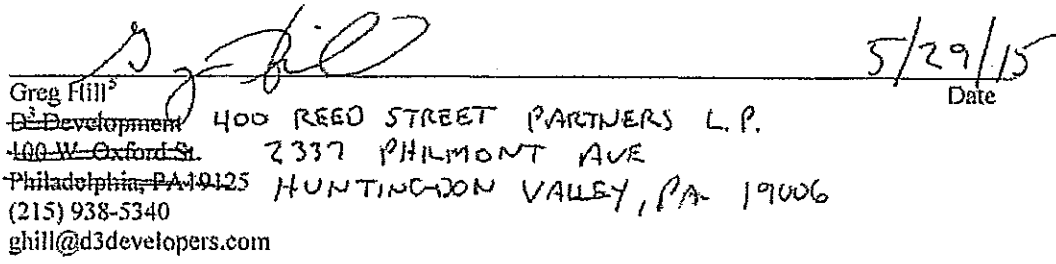 Greg Hill 5/29/15
Greg Hill⁵ Date
D³ Development 400 REED STREET PARTNERS L.P.
100 W. Oxford St. 2337 PHILMONT AVE
Philadelphia, PA 19125 HUNTINGDON VALLEY, PA 19006
(215) 938-5340
ghill@d3developers.com